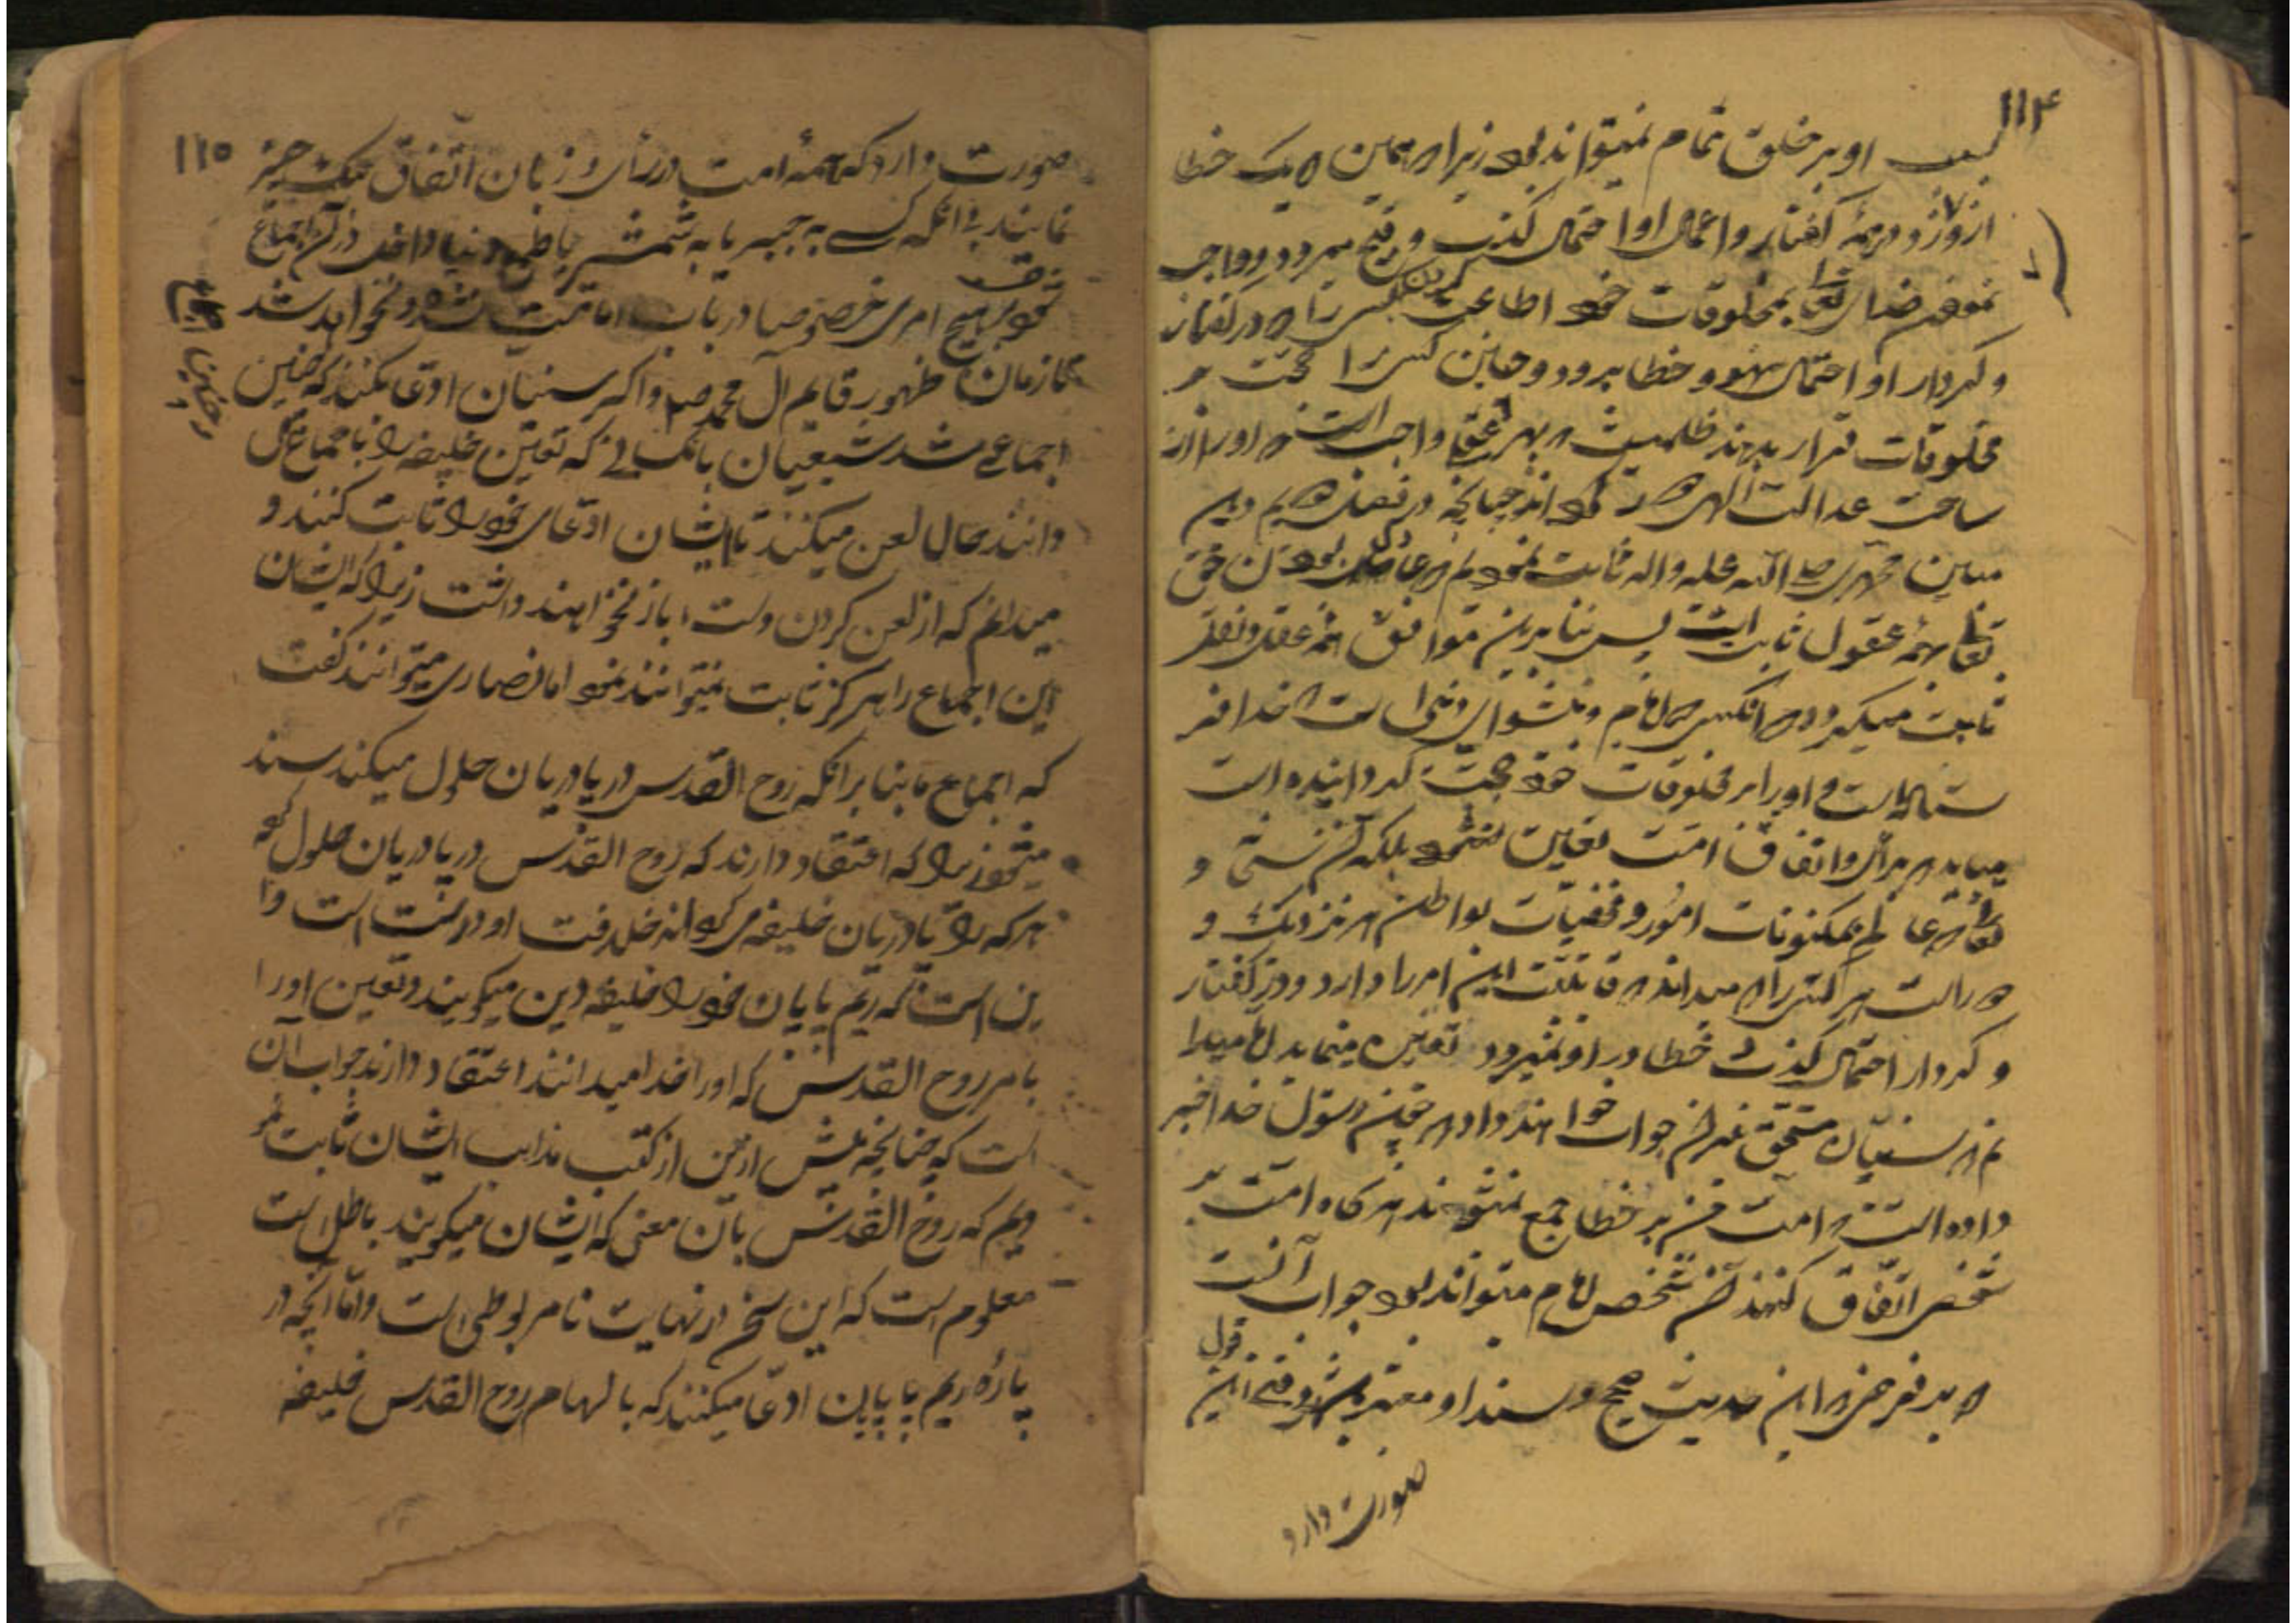 ۱۱۴
او بر خلق تمام نمیتواند بود زیرا که همین که یک خطا
از او زد در همهٔ گفتار و اعمال او احتمال کذب و قبح میرود و واجب
نمودن خدای تعالی بمخلوقات خود اطاعت کردن کسی را که در گفتار
و کردار او احتمال سهو و خطا برود و چنین کسی را حجت بر
مخلوقات قرار بدهند ظلمیست که بهر عقلی واجب است که او را از
ساحت عدالت الهی دور چنانچه در فصل هم دین
مبین محمدی صلی الله علیه واله ثابت نمودیم که عادل بودن حق
تعالی بهمهٔ عقول ثابت است پس بنابرین موافق همه عقل و نقل
ثابت میگردد که آنکسی که امام و پیشوای دین است از خدا
است و او را بر مخلوقات خود حجت گردانیده است
میباید که برأی و اتفاق امت تعیین نشود بلکه
تعالی که عالم بمکنونات امور و مخفیات بواطن هر نزدیک و
دور است هر کسی را که میداند که قابلیت این امر را دارد و در گفتار
و کردار احتمال کذب و خطا در او نمیرود تعیین مینماید اما میدا
نم که سنیان جواب خواهند داد که چون رسول خدا خبر
داده است که امت من بر خطا جمع نمیشوند هر گاه امت بر
شخصی اتفاق کنند آن شخص امام میتواند بود جواب آنست
که بر فرضی که این حدیث صحیح و سند او معتبر باشد وقتی این قول
صورت دارد
۱۱۵
صورت دارد که همهٔ امت در رأی و زبان اتفاق بیک چیز
نمایند بی آنکه کسی به جبر یا به شمشیر یا طمع دنیا داخل در آن اجماع
شود و چنین اجماع
بهیچ امری خصوصا در باب امامت نشده و نخواهد شد
تا زمان ظهور قایم آل محمد ص و اگر سنیان ادعا میکنند که چنین
اجماعی شد شیعیان بآنکسانی که تعیین خلیفه را باجماع
دانند حال لعن میکنند تا ایشان ادعای خود را ثابت کنند و
میدانم که از لعن کردن دست باز نخواهند داشت زیرا که ایشان
این اجماع را هرگز ثابت نمیتوانند نمود اما نصاری میتوانند گفت
که اجماع ما بنا بر آنکه روح القدس در پادریان حلول میکند سند
میشود زیرا که اعتقاد دارند که روح القدس در پادریان حلول کرده
هر که را پادریان خلیفه میگردانند خلافت او درست است و از
این است که ریم پاپایان خود را خلیفه دین میگویند و تعیین او را
بامر روح القدس که او را خدا میدانند اعتقاد دارند جواب آن
است که چنانچه پیش ازین از کتب مذاهب ایشان ثابت کر
دیم که روح القدس بآن معنی که ایشان میگویند باطل است
معلوم است که این سخن در نهایت نامربوطی است و اما آنچه در
بارهٔ ریم پاپایان ادعا میکنند که با الهام روح القدس خلیفه